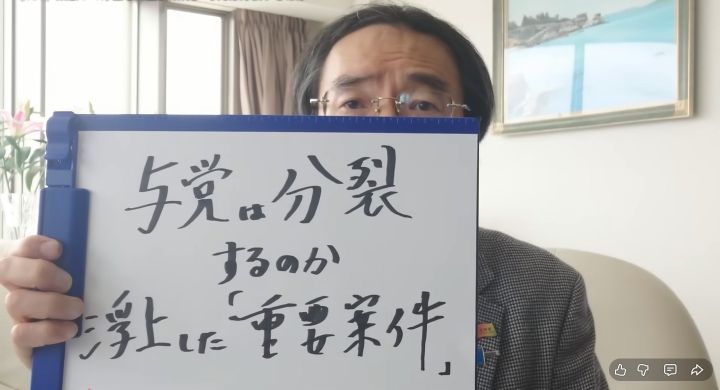 与党は分裂
するのか
浮上した「重要案件」